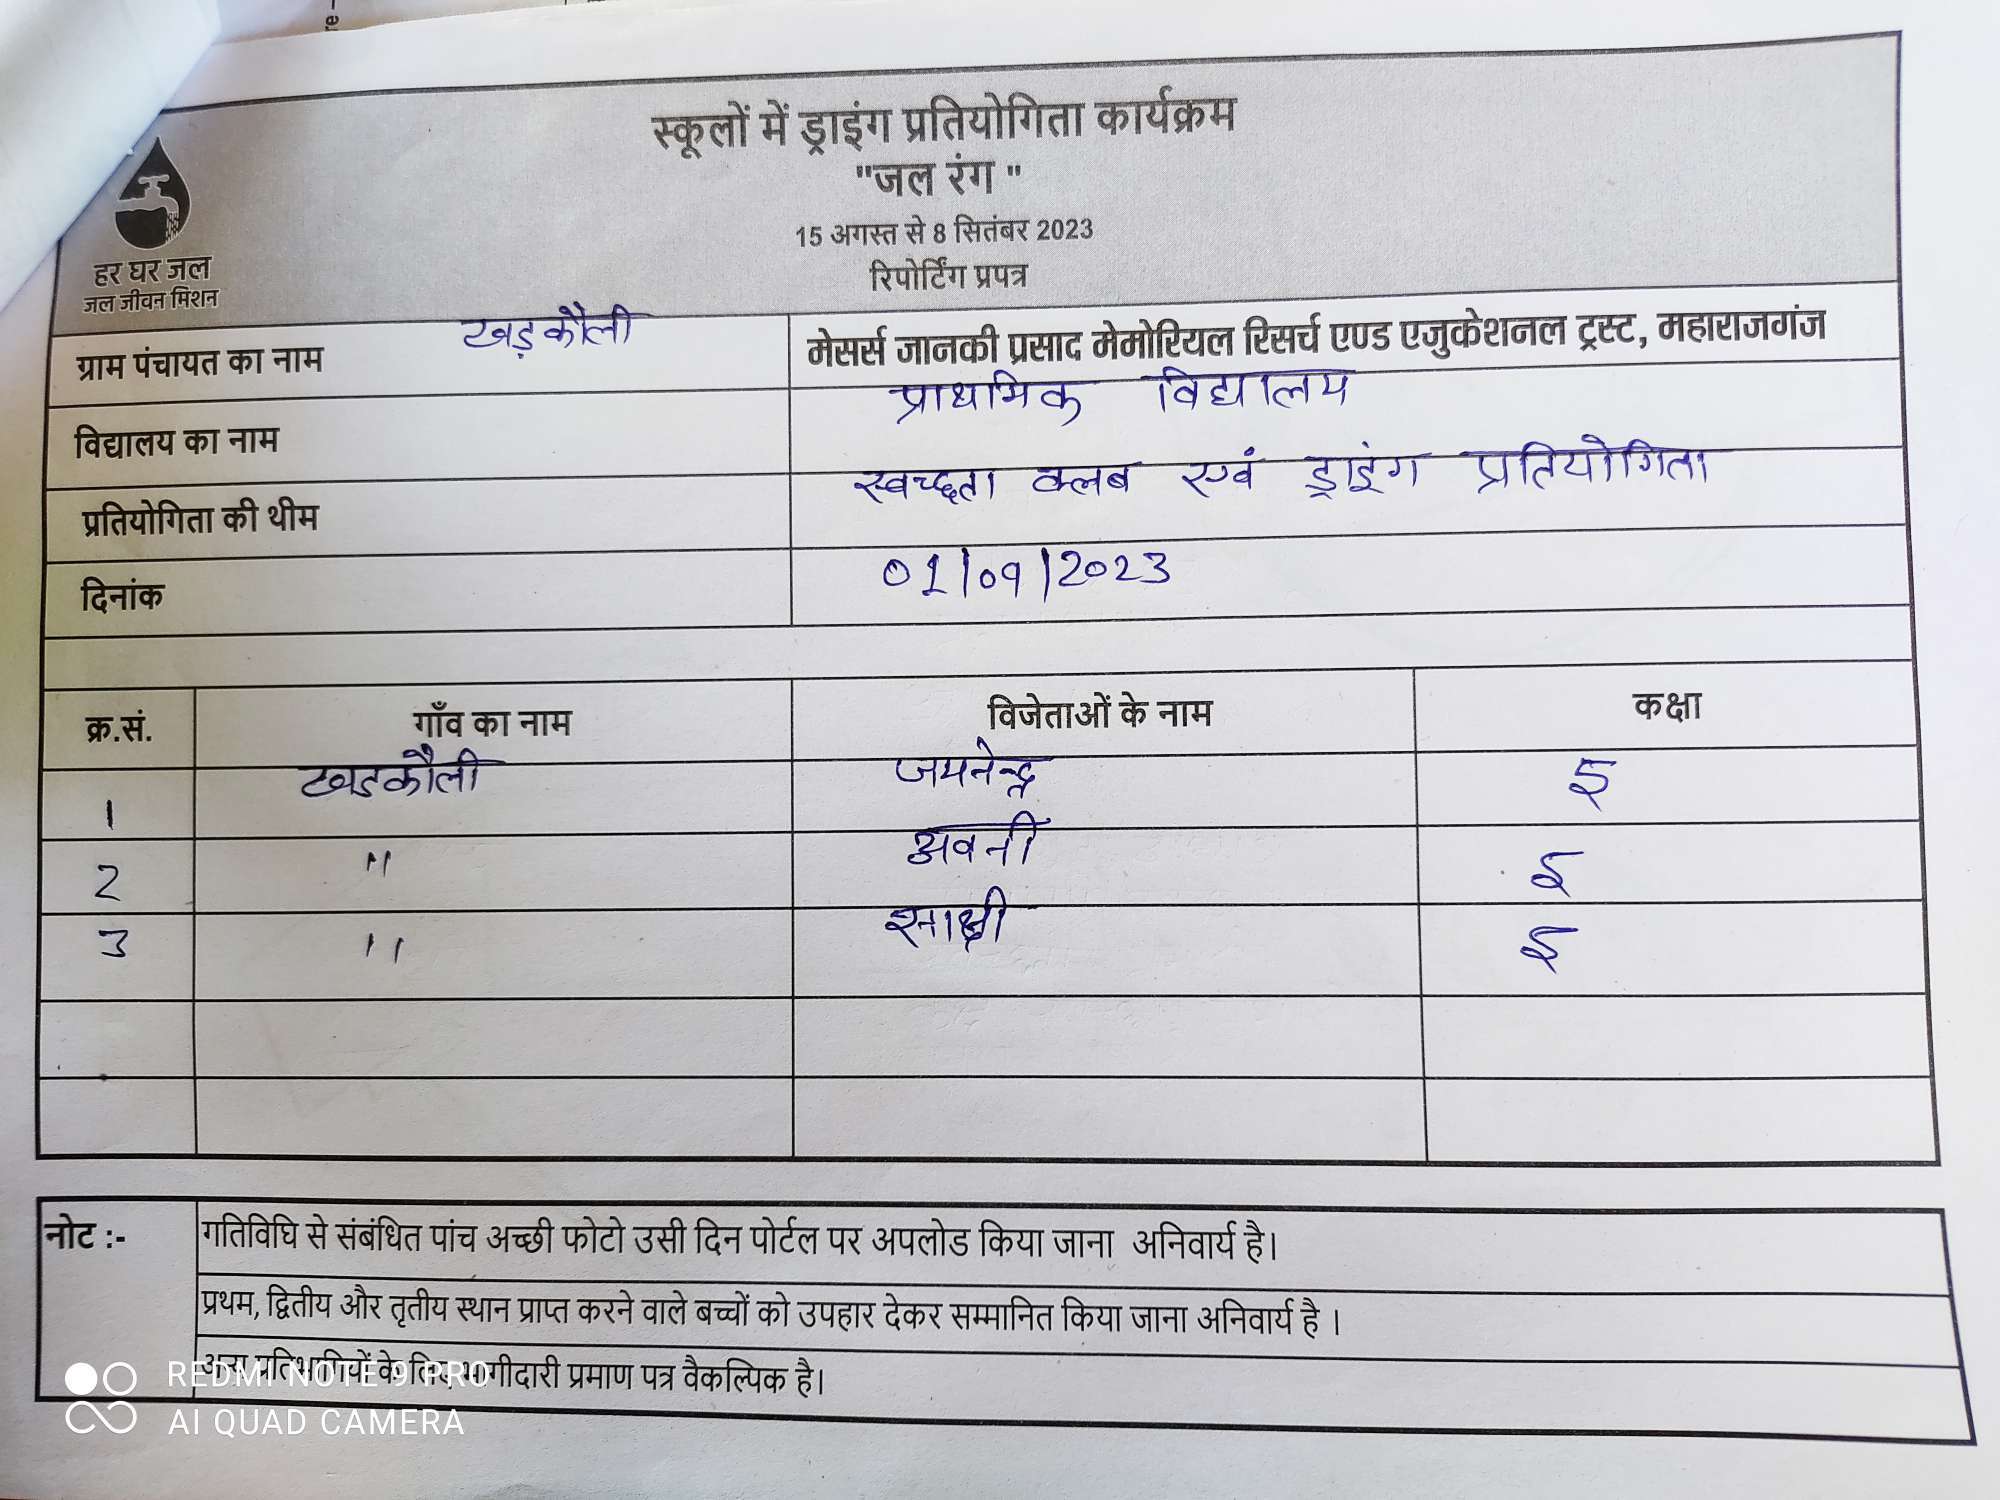 स्कूलों में ड्राइंग प्रतियोगिता कार्यक्रम
"जल रंग "
15 अगस्त से 8 सितंबर 2023
रिपोर्टिंग प्रपत्र
हर घर जल
जल जीवन मिशन
ग्राम पंचायत का नाम खड़कौली मेसर्स जानकी प्रसाद मेमोरियल रिसर्च एण्ड एजुकेशनल ट्रस्ट, महाराजगंज
विद्यालय का नाम प्राथमिक विद्यालय
प्रतियोगिता की थीम स्वच्छता क्लब एवं ड्राइंग प्रतियोगिता
दिनांक 01/09/2023
क्र.सं. गाँव का नाम विजेताओं के नाम कक्षा
1 खडकौली 5
2 " अवनी 5
3 " साक्षी 5
नोट :- गतिविधि से संबंधित पांच अच्छी फोटो उसी दिन पोर्टल पर अपलोड किया जाना अनिवार्य है।
प्रथम, द्वितीय और तृतीय स्थान प्राप्त करने वाले बच्चों को उपहार देकर सम्मानित किया जाना अनिवार्य है ।
अन्य प्रतिभागियों के लिए भागीदारी प्रमाण पत्र वैकल्पिक है।
REDMI NOTE 9 PRO
AI QUAD CAMERA